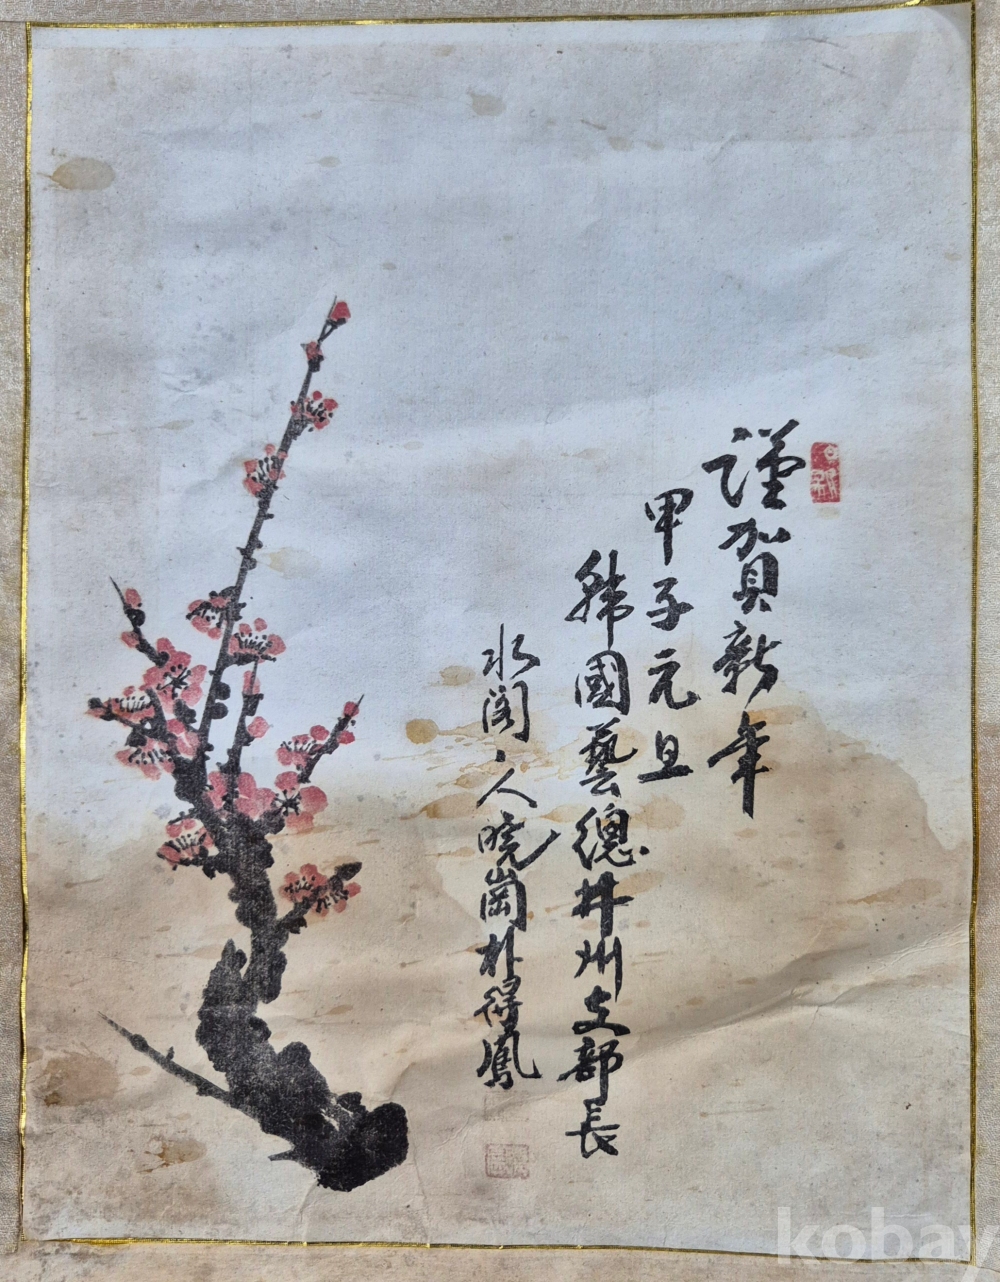 謹賀新年
甲子元旦
韓國藝總井州支部長
水閣、人曉崗朴得鳳
kobay